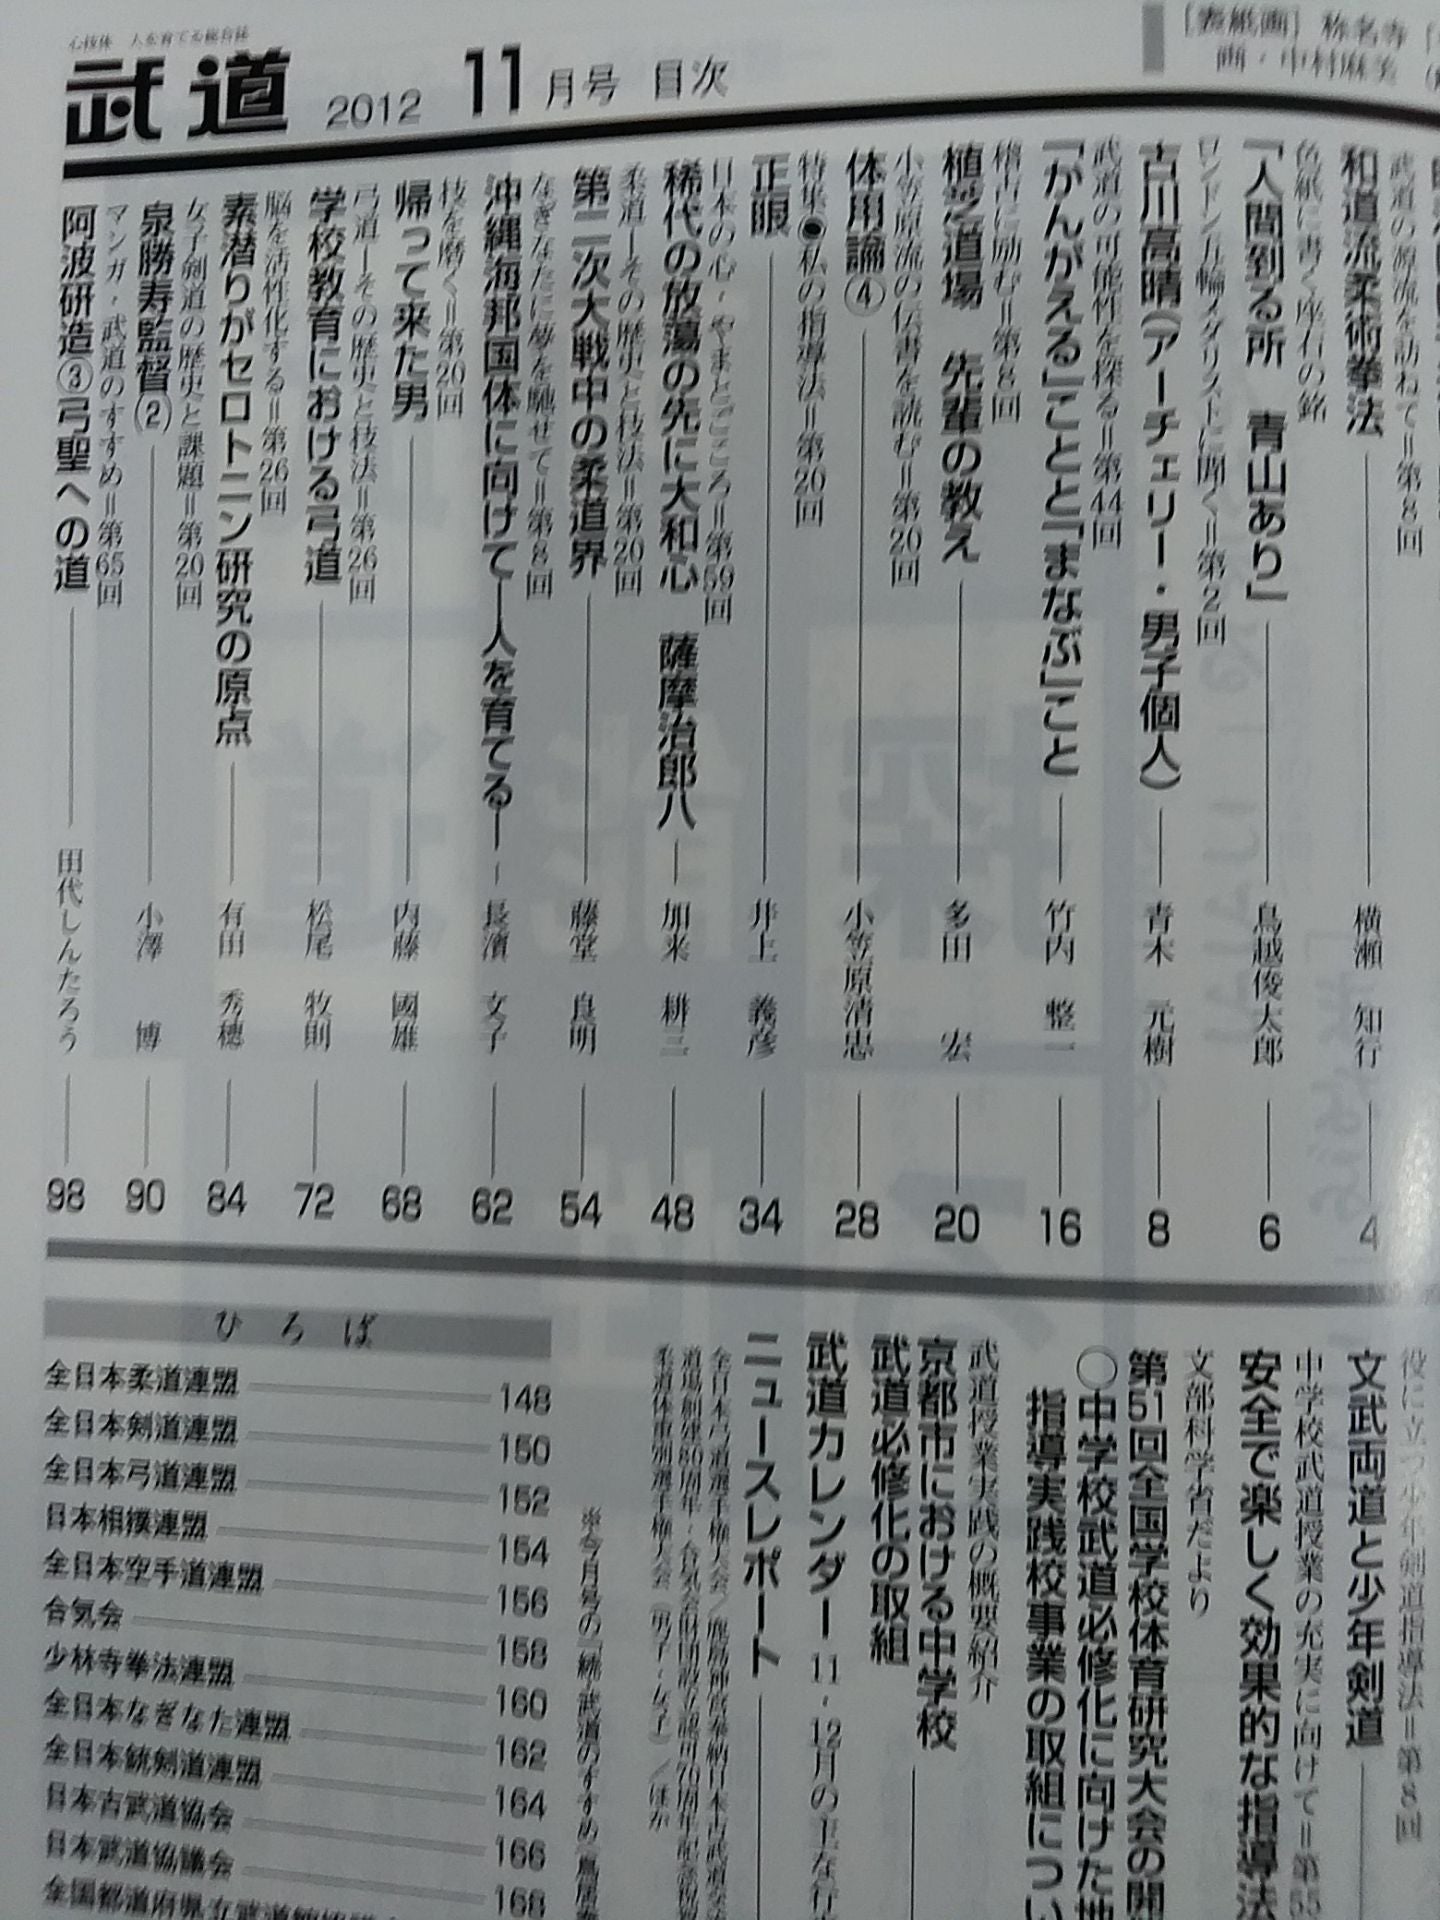 心技体 人を育てる総合誌
武道 2012 11月号 目次
[表紙画] 称名寺
画・中村麻美
武道の源流を訪ねて=第8回
和道流柔術拳法 横瀬 知行 4
色紙に書く座右の銘
「人間到る所 青山あり」 鳥越俊太郎 6
ロンドン五輪メダリストに聞く=第2回
古川高晴(アーチェリー・男子個人) 青木 元樹 8
武道の可能性を探る=第44回
「かんがえる」ことと「まなぶ」こと 竹内 整一 16
稽古に励む=第8回
植芝道場 先輩の教え 多田 宏 20
小笠原流の伝書を読む=第20回
体用論④ 小笠原清忠 28
特集●私の指導法=第20回
正眼 井上 義彦 34
日本の心・やまとごころ=第59回
稀代の放蕩の先に大和心 薩摩治郎八 加来 耕三 48
柔道―その歴史と技法=第20回
第二次大戦中の柔道界 藤堂 良明 54
なぎなたに夢を馳せて=第8回
沖縄海邦国体に向けて―人を育てる― 長濱 文子 62
技を磨く=第20回
帰って来た男 内藤 國雄 68
弓道―その歴史と技法=第26回
学校教育における弓道 松尾 牧則 72
脳を活性化する=第26回
素潜りがセロトニン研究の原点 有田 秀穂 84
女子剣道の歴史と課題=第20回
泉勝寿監督(2) 小澤 博 90
マンガ・武道のすすめ=第65回
阿波研造③弓聖への道 田代しんたろう 98
役に立つ少年剣道指導法=第8回
文武両道と少年剣道
中学校武道授業の充実に向けて=第55
安全で楽しく効果的な指導法
文部科学省だより
第51回全国学校体育研究大会の開
○中学校武道必修化に向けた地
指導実践校事業の取組につい
武道授業実践の概要紹介
京都市における中学校
武道必修化の取組
武道カレンダー 11・12月の主な行
ニュースレポート
全日本弓道選手権大会/鹿島神宮奉納日本古武道交流
道場創建80周年・合気会財団設立認可70周年記念祝
柔道体重別選手権大会(男子・女子)/ほか
※今月号の「続・武道のすすめ
ひろば
全日本柔道連盟 148
全日本剣道連盟 150
全日本弓道連盟 152
日本相撲連盟 154
全日本空手道連盟 156
合気会 158
少林寺拳法連盟 160
全日本なぎなた連盟 162
全日本銃剣道連盟 164
日本古武道協会 166
日本武道協議会 168
全国都道府県立武道館協議